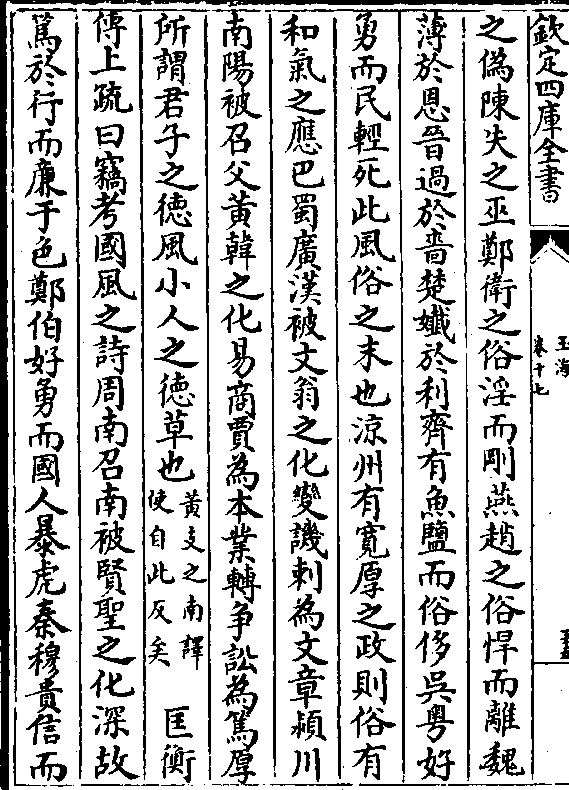 欽定四庫全書
玉海
卷十七
之偽陳失之巫鄭衛之俗淫而剛燕趙之俗悍而離魏
薄於恩晉過於嗇楚孅於利齊有魚鹽而俗侈吳粤好
勇而民輕死此風俗之末也涼州有寛厚之政則俗有
和氣之應巴蜀廣漢被文翁之化變譏刺為文章潁川
南陽被召父黃韓之化易商賈為本業轉爭訟為篤厚
所謂君子之徳風小人之徳草也黃支之南譯使自此反矣 匡衡
傅上疏曰竊考國風之詩周南召南被賢聖之化深故
篤於行而廉于色鄭伯好勇而國人暴虎秦穆貴信而